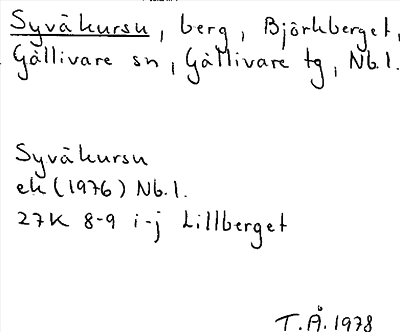 Syväkursu, berg, Björkberget,
Gällivare sn, Gällivare tg, Nb.l.
Syväkursu
ek (1976) Nb.l.
27K 8-9 i-j Lillberget
T.Å. 1978